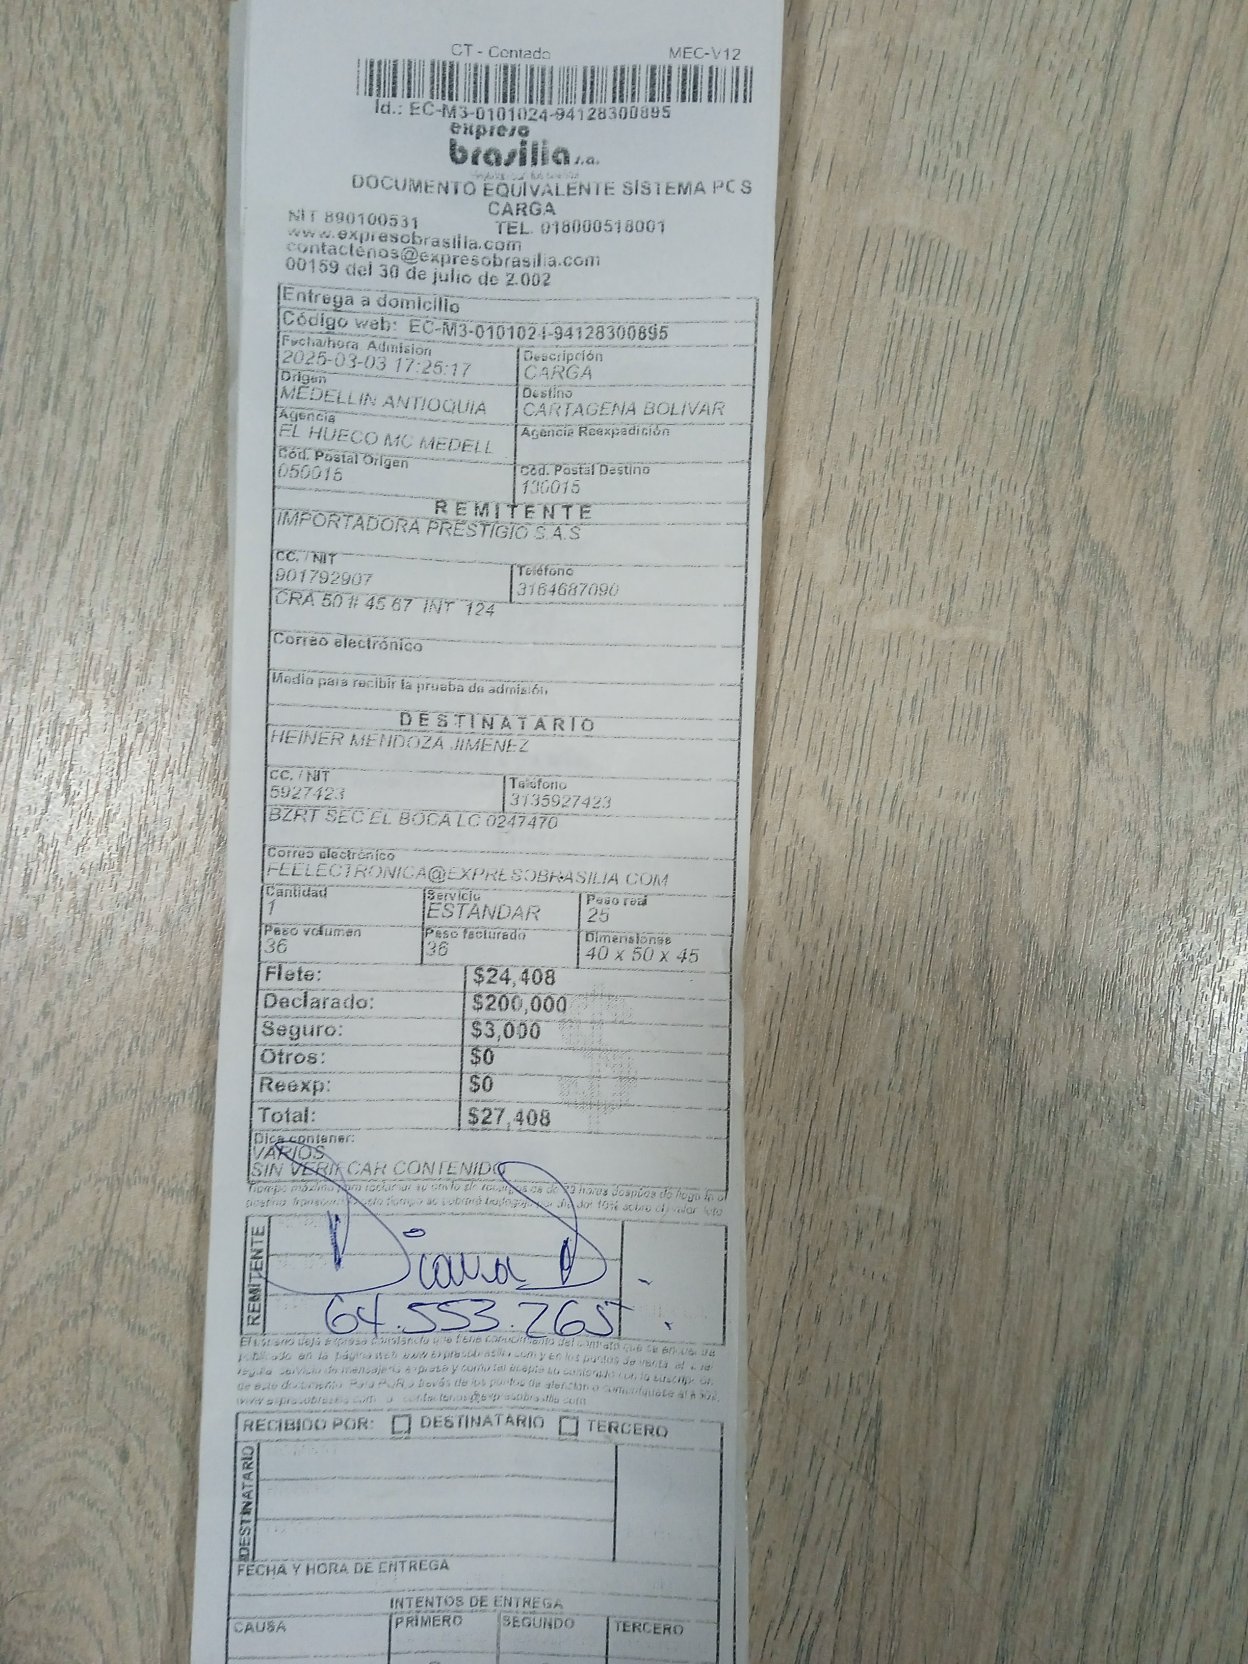 CT - Contado MEC-V12
Id.: EC-M3-0101024-94128300895
expreso
brasilia s.a.
DOCUMENTO EQUIVALENTE SISTEMA POS
CARGA
NIT 890100531 TEL. 018000518001
www.expresobrasilia.com
contactenos@expresobrasilia.com
00159 del 30 de julio de 2.002
Entrega a domicilio
Código web: EC-M3-0101024-94128300895
Fecha/hora Admision Descripción
2025-03-03 17:25:17 CARGA
Origen Destino
MEDELLIN ANTIOQUIA CARTAGENA BOLIVAR
Agencia Agencia Reexpedición
EL HUECO MC MEDELL
Cód. Postal Origen Cód. Postal Destino
050015 130015
REMITENTE
IMPORTADORA PRESTIGIO S.A.S
CC. / NIT Teléfono
901792907 3164687090
CRA 50 # 45 67 INT 124
Correo electrónico
Medio para recibir la prueba de admisión
DESTINATARIO
HEINER MENDOZA JIMENEZ
CC. / NIT Teléfono
5927423 3135927423
BZRT SEC EL BOCA LC 0247470
Correo electrónico
FEELECTRONICA@EXPRESOBRASILIA.COM
Cantidad Servicio Peso real
1 ESTANDAR 25
Peso volumen Peso facturado Dimensiones
36 36 40 x 50 x 45
Flete: $24,408
Declarado: $200,000
Seguro: $3,000
Otros: $0
Reexp: $0
Total: $27,408
Dice contener:
VARIOS
SIN VERIFICAR CONTENIDO
REMITENTE
Diana D.
64.553.265
RECIBIDO POR: DESTINATARIO TERCERO
DESTINATARIO
FECHA Y HORA DE ENTREGA
INTENTOS DE ENTREGA
CAUSA PRIMERO SEGUNDO TERCERO